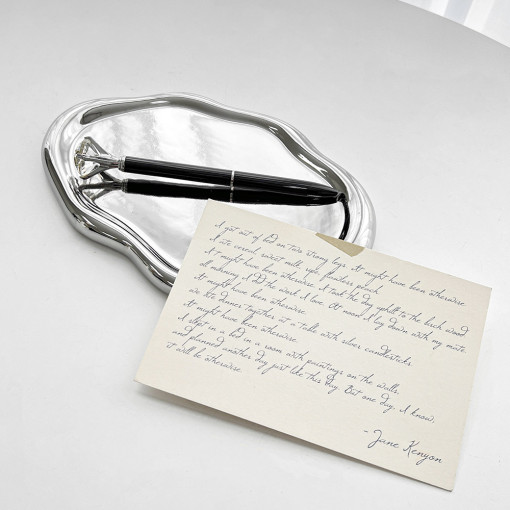 I got out of bed on two strong legs. It might have been otherwise.
I ate cereal, sweet milk, ripe, flawless peach.
It might have been otherwise. I took the dog uphill to the birch wood.
All morning I did the work I love. At noon I lay down with my mate.
It might have been otherwise.
We ate dinner together at a table with silver candlesticks.
It might have been otherwise.
I slept in a bed in a room with paintings on the walls,
and planned another day just like this day. But one day, I know,
it will be otherwise.
- Jane Kenyon